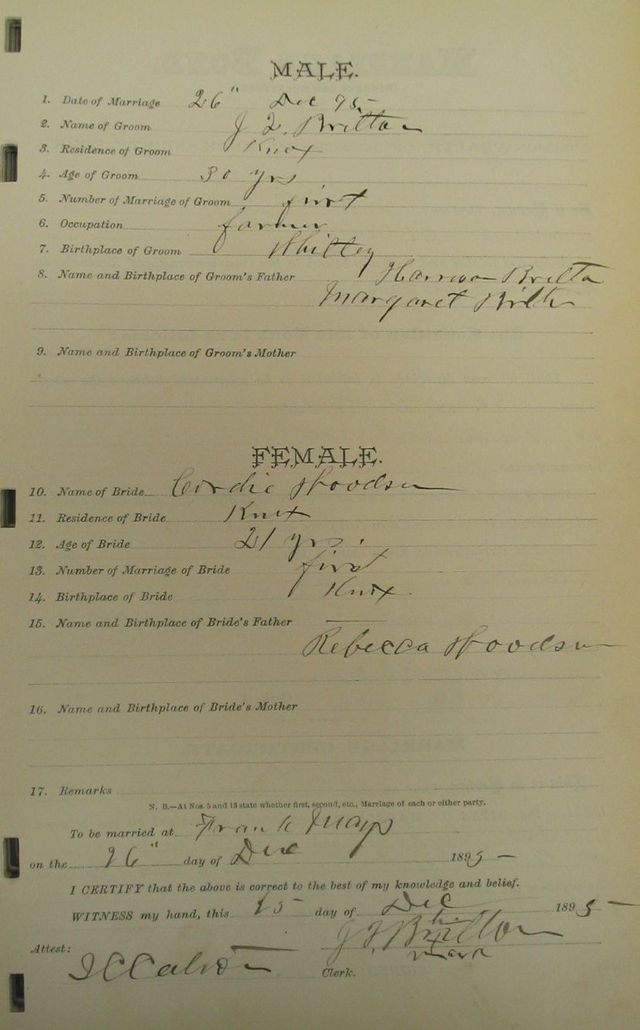 MALE.
1. Date of Marriage 26" Dec 95
2. Name of Groom J. F. Britton
3. Residence of Groom Knox
4. Age of Groom 30 yrs
5. Number of Marriage of Groom first
6. Occupation farmer
7. Birthplace of Groom Whitley
8. Name and Birthplace of Groom's Father Harrison Britton
Margaret Britton
9. Name and Birthplace of Groom's Mother
FEMALE.
10. Name of Bride Cordie Woodson
11. Residence of Bride Knox
12. Age of Bride 21 yrs.
13. Number of Marriage of Bride first
14. Birthplace of Bride Knox
15. Name and Birthplace of Bride's Father
Rebecca Woodson
16. Name and Birthplace of Bride's Mother
17. Remarks
N. B.—At Nos. 5 and 13 state whether first, second, etc., Marriage of each or either party.
To be married at Frank Mays
on the 26" day of Dec 1895
I CERTIFY that the above is correct to the best of my knowledge and belief.
WITNESS my hand, this 25 day of Dec 1895
his
Attest: J F Britton
mark
Clerk.